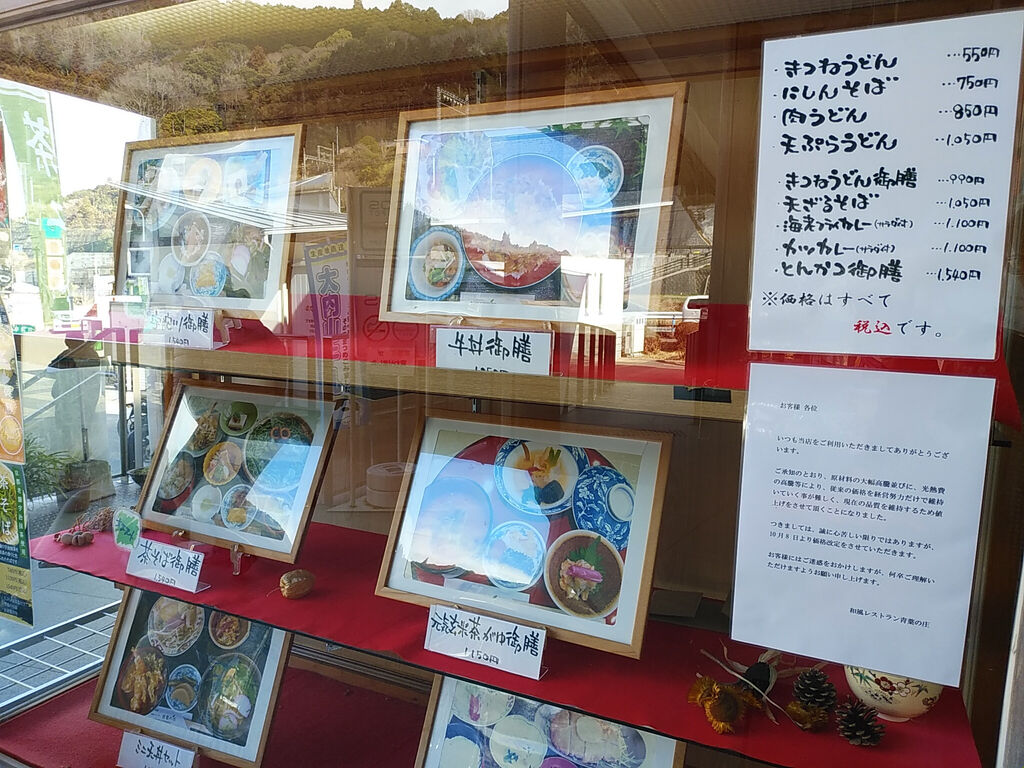 ・きつねうどん …550円
・にしんそば …750円
・肉うどん …850円
・天ぷらうどん …1,050円
・きつねうどん御膳 …990円
・天ざるそば …1,050円
・海老フライカレー(サラダ付) …1,100円
・カツカレー(サラダ付) …1,100円
・とんかつ御膳 …1,540円
※価格はすべて
税込です。
お客様 各位
いつも当店をご利用いただきましてありがとうござ
います。
ご承知のとおり、原材料の大幅高騰並びに、光熱費
の高騰等により、従来の価格を経営努力だけで維持
していく事が難しく、現在の品質を維持するため値
上げをさせて頂くことになりました。
つきましては、誠に心苦しい限りではありますが、
10月8日より価格改定をさせていただきます。
お客様にはご迷惑をおかけしますが、何卒ご理解い
ただけますようお願い申し上げます。
和風レストラン青葉の庄
御膳
1,540円
牛丼御膳
茶そば御膳
1,540円
元気茶がゆ御膳
1,150円
ミニ天丼セット
茶そば